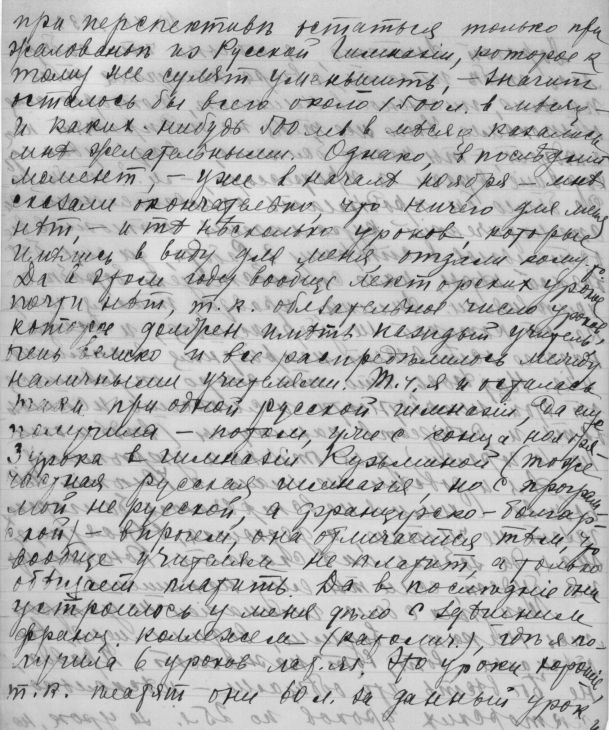 при перспективѣ остаться только при
жалованьи из Русской Гимназіи, которое к
тому же сулят уменьшить, – значит
осталось бы всего около 1500 л. в мѣсяц –
и каких-нибудь 500 лев в мѣсяц казались
мнѣ желательными. Однако, в послѣдній
момент, – уже в началѣ ноября – мнѣ
сказали окончательно, что ничего для меня
нѣт, – и тѣ нѣсколько уроков, которые
имѣлись в виду для меня, отдали кому-то.
Да в этом году вообще лекторских уроков
почти нѣт, т.к. обязательное число уроков,
которое должен имѣть каждый учитель,
очень велико и все распредѣлилось между
наличными учителями. Т.ч. я и осталась
таки при одной русской гимназіи, да еще
получила – потом, уже с конца ноября –
3 урока в гимназіи Кузьминой (тоже
частная русская гимназія, но с програм
мой не русской, а французско-болгар-
ской) – впрочем, она отличается тѣм, что
вообще учителям не платит, а только
обѣщает платить. Да в послѣдніе дни
устроилось у меня дѣло с здѣшним
франц. коллежем (католич.), гдѣ я по-
лучила 6 уроков лат. яз. Это уроки хорошіе,
т.к. платят они 60 л. за данный урок
и